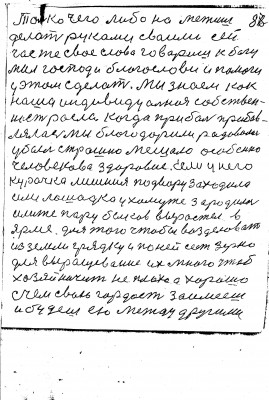 Только чего либо на метим 88
делат руками своими сей
час те свое слова говарим к богу
мил господи благослови и помоги
у этом сделат. Мы знаем как
наша индивидуалная собствен-
ност расла. Когда прибал прибав-
лялас мы благодарили радовалис
убали страшно мешало особенно
человекава здоровие, если у него
курачка лишния подвору заходила
или лошадка ухамуте зародилас
или те пару быков вырасты в
ярме. для того чтобы возделоват
из земли грядку и по ней сет зурно
для выращевание их много чтоб
хозяй начит не плоха а харошо
с чем сваю гардост заимееш
и будеш ею между другими